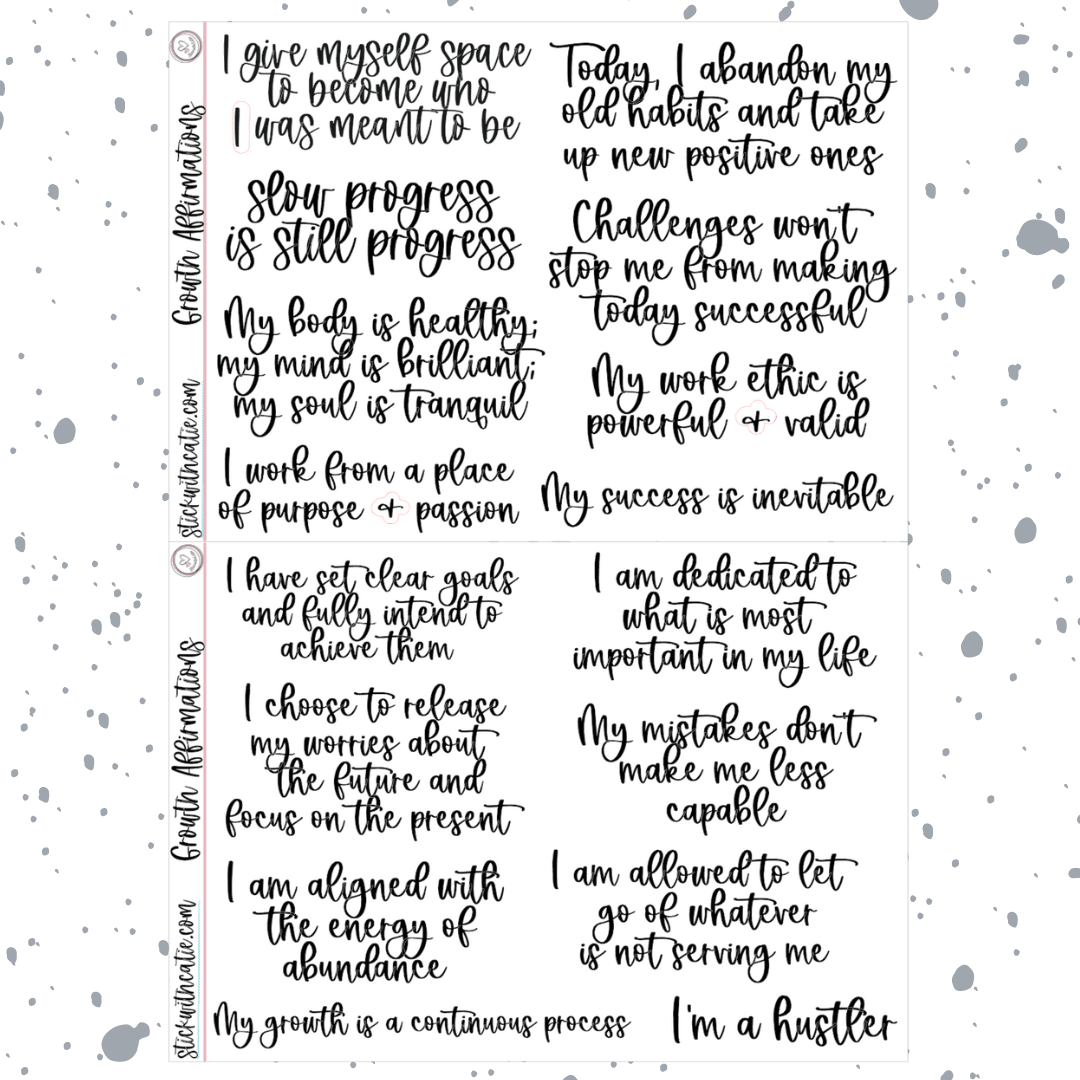 Growth Affirmations
stickwithcatie.com
I give myself space
to become who
I was meant to be
slow progress
is still progress
My body is healthy;
my mind is brilliant;
my soul is tranquil
I work from a place
of purpose & passion
Today, I abandon my
old habits and take
up new positive ones
Challenges won't
stop me from making
today successful
My work ethic is
powerful & valid
My success is inevitable
Growth Affirmations
stickwithcatie.com
I have set clear goals
and fully intend to
achieve them
I choose to release
my worries about
the future and
focus on the present
I am aligned with
the energy of
abundance
My growth is a continuous process
I am dedicated to
what is most
important in my life
My mistakes don't
make me less
capable
I am allowed to let
go of whatever
is not serving me
I'm a hustler